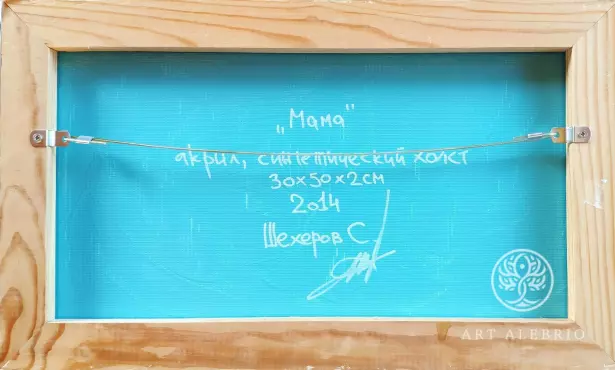 „Мама"
акрил, синтетический холст
30x50x2см
2014
Шехеров С.
ART ALEBRIO